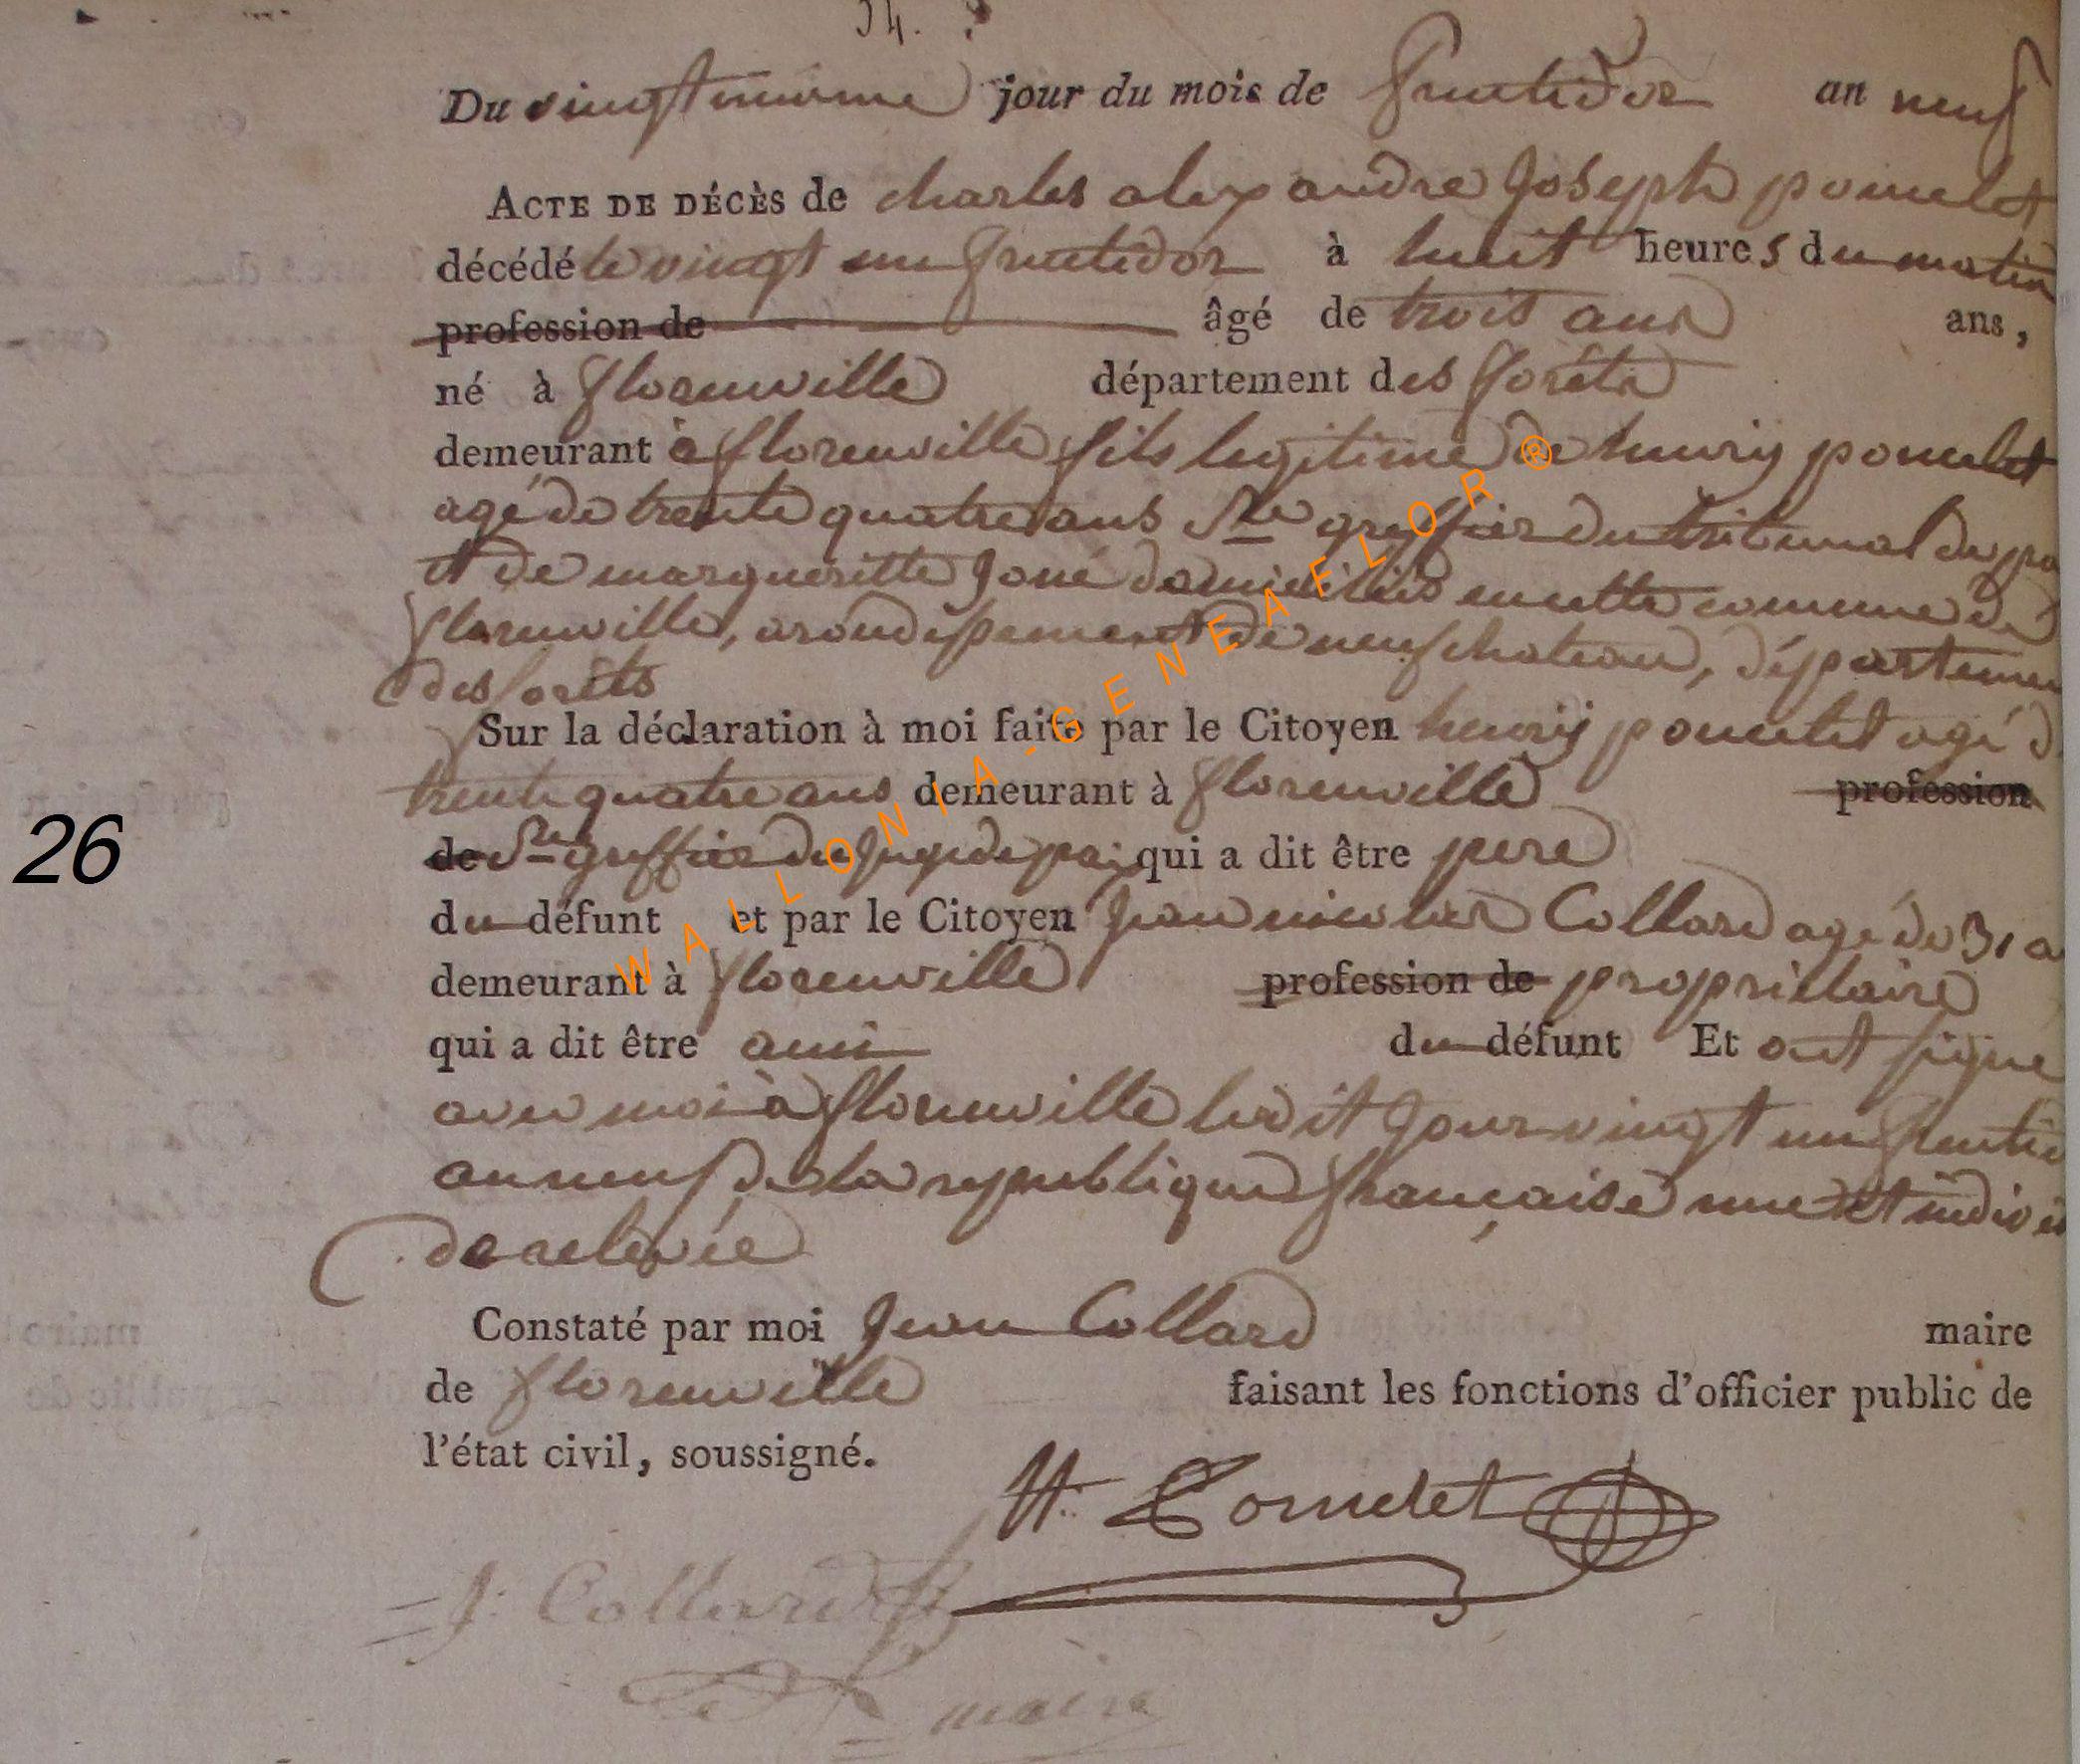 54.
Du vingt unieme jour du mois de fructidor an neuf
ACTE DE DÉCÈS de charles alexandre Joseph poncelet
décédé le vingt un fructidor à huit heures du matin
profession de âgé de trois ans ans,
né à florenville département des forêts
demeurant à florenville fils legitime de henry poncelet
agé de trente quatre ans greffier du tribunal de pa
et de margueritte Joné domiciliés en cette commune de
florenville, arondissement de neufchateau, départemen
des forêts
Sur la déclaration à moi faite par le Citoyen henry poncelet agé d
trente quatre ans demeurant à florenville profession
de greffier du Juge de paix qui a dit être pere
du défunt et par le Citoyen Jean nicolas Collard agé de 31 a
demeurant à florenville profession de propriétaire
qui a dit être ami du défunt Et ont signe
avec moi à florenville ledit Jour vingt un fructid
an neuf de la republique française une et indivis
de relevée
Constaté par moi Jean Collard maire
de florenville faisant les fonctions d'officier public de
l'état civil, soussigné.
H. Poncelet
J. Collard
maire
26
WALLONIA-GENEAFLOR®